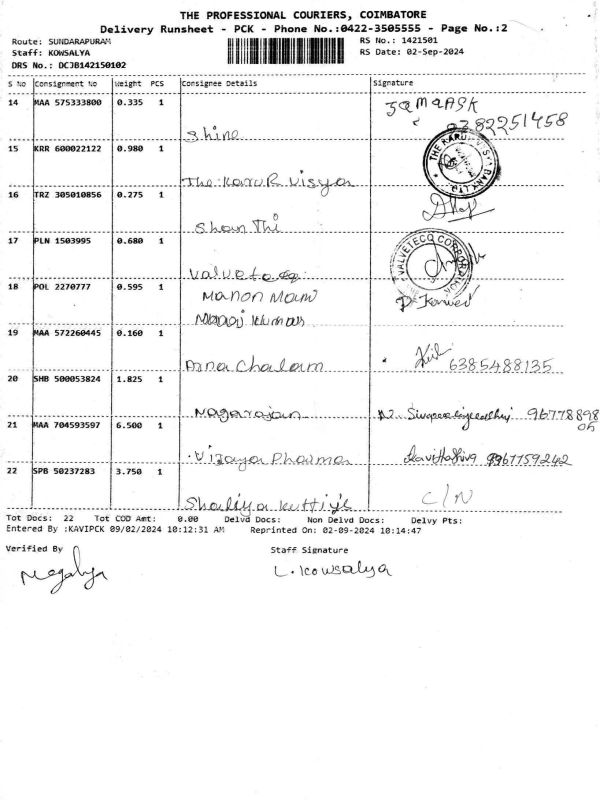 THE PROFESSIONAL COURIERS, COIMBATORE
Delivery Runsheet - PCK - Phone No.:0422-3505555 - Page No.:2
Route: SUNDARAPURAM RS No.: 1421501
Staff: KOWSALYA RS Date: 02-Sep-2024
DRS No.: DCJB142150102
S No Consignment No Weight PCS Consignee Details Signature
14 MAA 575333800 0.335 1
Shine
15 KRR 600022122 0.980 1 THE KARUR VYSYA BANK LTD.
The Karur Visya
16 TRZ 305010856 0.275 1
Shan Thi
17 PLN 1503995 0.680 1 VALVETECQ CORPORATION
Valvetecq
18 POL 2270777 0.595 1 Manon Mani
Kumar
19 MAA 572260445 0.160 1
Arna Chalam 6385488135
20 SHB 500053824 1.825 1
Nagarajan
21 MAA 704593597 6.500 1
Vijaya Pharma
22 SPB 50237283 3.750 1 C/N
Shadiya Kuttiys
Tot Docs: 22 Tot COD Amt: 0.00 Delvd Docs: Non Delvd Docs: Delvy Pts:
Entered By :KAVIPCK 09/02/2024 10:12:31 AM Reprinted On: 02-09-2024 10:14:47
Verified By Staff Signature
L. Kowsalya